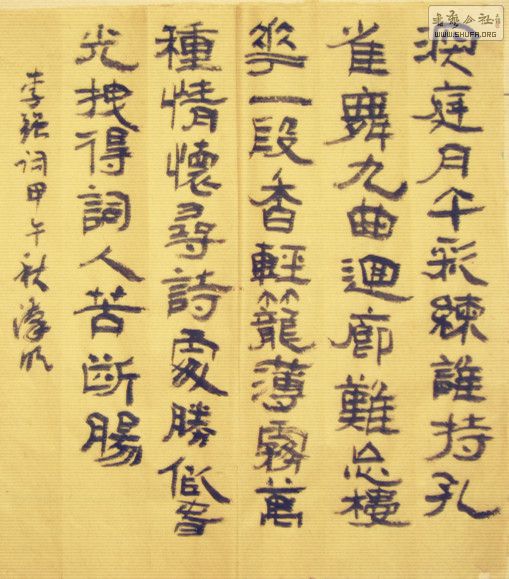 庭月午彩練誰持孔
雀舞九曲迴廊難忘
華一段香輕籠薄霧萬
種情懷尋詩處勝似春
光拽得詞人苦斷腸
李强詞甲午秋
書藝公社
WWW.SHUFA.ORG